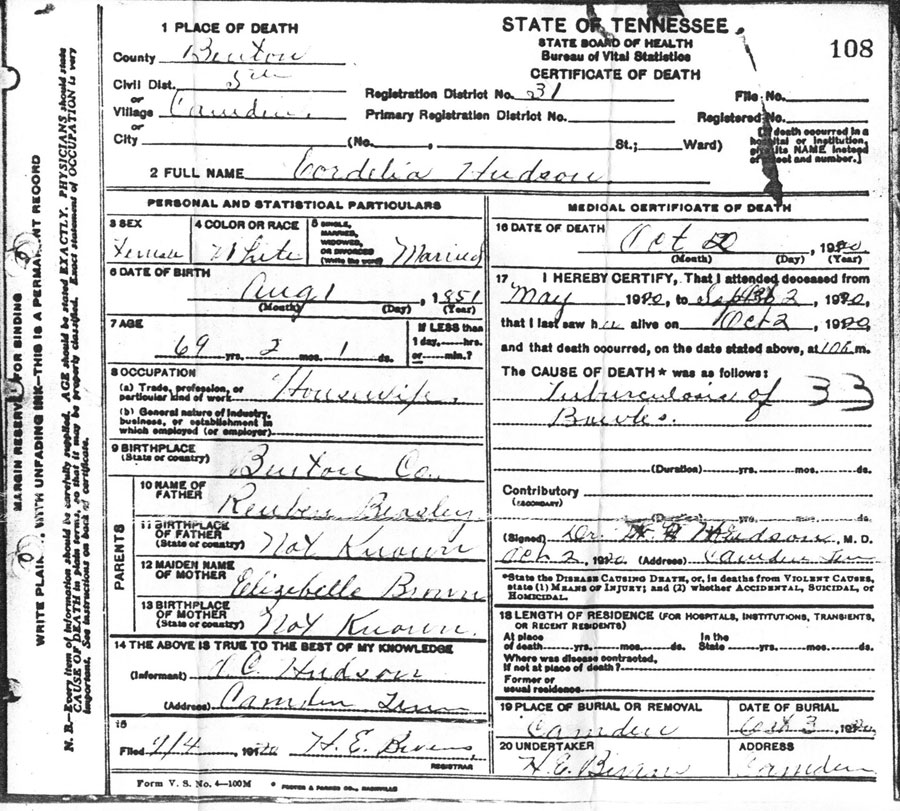 STATE OF TENNESSEE
STATE BOARD OF HEALTH
Bureau of Vital Statistics
CERTIFICATE OF DEATH
108
1 PLACE OF DEATH
County Benton
Civil Dist. 5th
or
Village Camden
or
City (No. , St.; Ward)
Registration District No. 31 File No.
Primary Registration District No. Registered No.
[If death occurred in a
hospital or institution,
give its NAME instead
of street and number.]
2 FULL NAME Cordelia Hudson
PERSONAL AND STATISTICAL PARTICULARS
3 SEX
Female
4 COLOR OR RACE
White
5 SINGLE,
MARRIED,
WIDOWED,
OR DIVORCED
(Write the word)
Married
6 DATE OF BIRTH
Aug 1, 1851
(Month) (Day) (Year)
7 AGE
69 yrs. 2 mos. 1 ds.
If LESS than
1 day, hrs.
or min.?
8 OCCUPATION
(a) Trade, profession, or
particular kind of work Housewife
(b) General nature of Industry,
business, or establishment in
which employed (or employer)
9 BIRTHPLACE
(State or country) Benton Co.
PARENTS
10 NAME OF
FATHER Reuben Beasley
11 BIRTHPLACE
OF FATHER
(State or country) Not Known
12 MAIDEN NAME
OF MOTHER Elizebelle Brown
13 BIRTHPLACE
OF MOTHER
(State or country) Not Known.
14 THE ABOVE IS TRUE TO THE BEST OF MY KNOWLEDGE
(Informant) Hudson
(Address) Camden Tenn
15
Filed 191 H. E. Bivens
REGISTRAR
MEDICAL CERTIFICATE OF DEATH
16 DATE OF DEATH
Oct , 1920
(Month) (Day) (Year)
17 I HEREBY CERTIFY, That I attended deceased from
May 1920, to 2, 1920,
that I last saw h alive on Oct 2, 1920,
and that death occurred, on the date stated above, at m.
The CAUSE OF DEATH * was as follows:
Tuberculosis of 33
Bowles.
(Duration) yrs. mos. ds.
Contributory
(SECONDARY)
(Duration) yrs. mos. ds.
(Signed) Dr. Hudson, M. D.
Oct 2, 1920 (Address) Camden Tenn
*State the DISEASE CAUSING DEATH, or, in deaths from VIOLENT CAUSES,
state (1) MEANS OF INJURY; and (2) whether ACCIDENTAL, SUICIDAL, or
HOMICIDAL.
18 LENGTH OF RESIDENCE (FOR HOSPITALS, INSTITUTIONS, TRANSIENTS,
OR RECENT RESIDENTS)
At place In the
of death yrs. mos. ds. State yrs. mos. ds.
Where was disease contracted,
If not at place of death?
Former or
usual residence
19 PLACE OF BURIAL OR REMOVAL
Camden
DATE OF BURIAL
Oct 3, 1920
20 UNDERTAKER
H. E. Bivens
ADDRESS
Camden
Form V. S. No. 4—100M
FOSTER & PARKES CO., NASHVILLE
MARGIN RESERVED FOR BINDING
WRITE PLAINLY WITH UNFADING INK—THIS IS A PERMANENT RECORD
N. B.—Every item of information should be carefully supplied. AGE should be stated EXACTLY. PHYSICIANS should state
CAUSE OF DEATH in plain terms, so that it may be properly classified. Exact statement of OCCUPATION is very
important. See instructions on back of certificate.